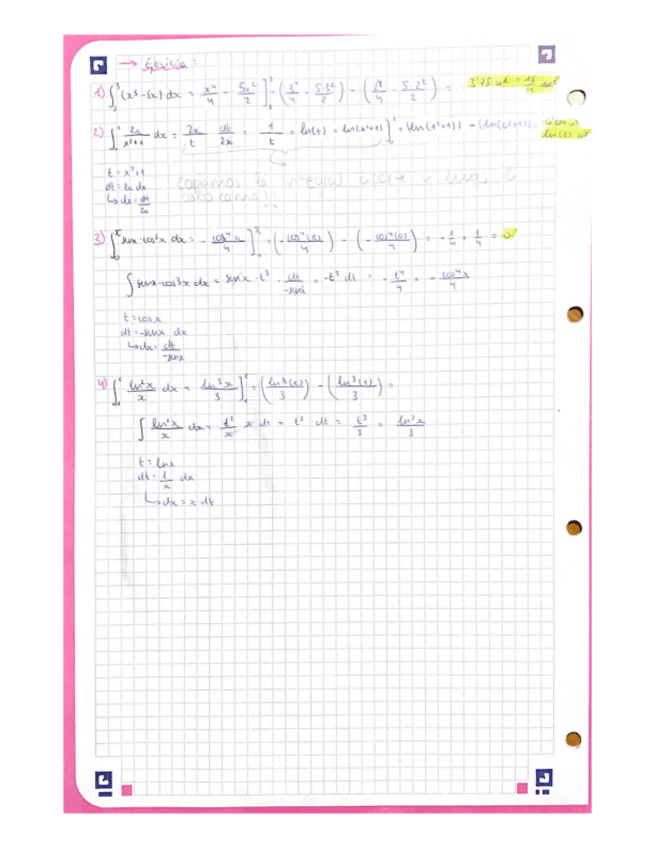 → Ejercicios:
1) ∫₂³ (x³-5x) dx = x⁴/4 - 5x²/2 ]₂³ = (3⁴/4 - 5·3²/2) - (2⁴/4 - 5·2²/2) = 3'75 u² = 15/4 u²
2) ∫₀¹ 2x/x²+1 dx = 2x/t dt/2x = 1/t = ln(t) = ln(x²+1) ]₀¹ = (ln(1²+1)) - (ln(0²+1)) = ln(2) u²
t = x²+1
dt = 2x dx
↳ dx = dt/2x
Copiamos la integral aparte y luego la
3) ∫₀^π senx·cos³x dx = - cos⁴x/4 ]₀^π = (- cos⁴(π)/4) - (- cos⁴(0)/4) = - 1/4 + 1/4 = 0
∫ senx·cos3x dx = senx · t³ · dt/-senx = -t³ dt = - t⁴/4 = - cos⁴x/4
t = cosx
dt = -senx dx
↳ dx = dt/-senx
4) ∫₁^e ln²x/x dx = ln³x/3 ]₁^e = (ln³(e)/3) - (ln³(1)/3) =
∫ ln²x/x dx = t²/x x dt = t² dt = t³/3 = ln³x/3
t = lnx
dt = 1/x dx
↳ dx = x dt